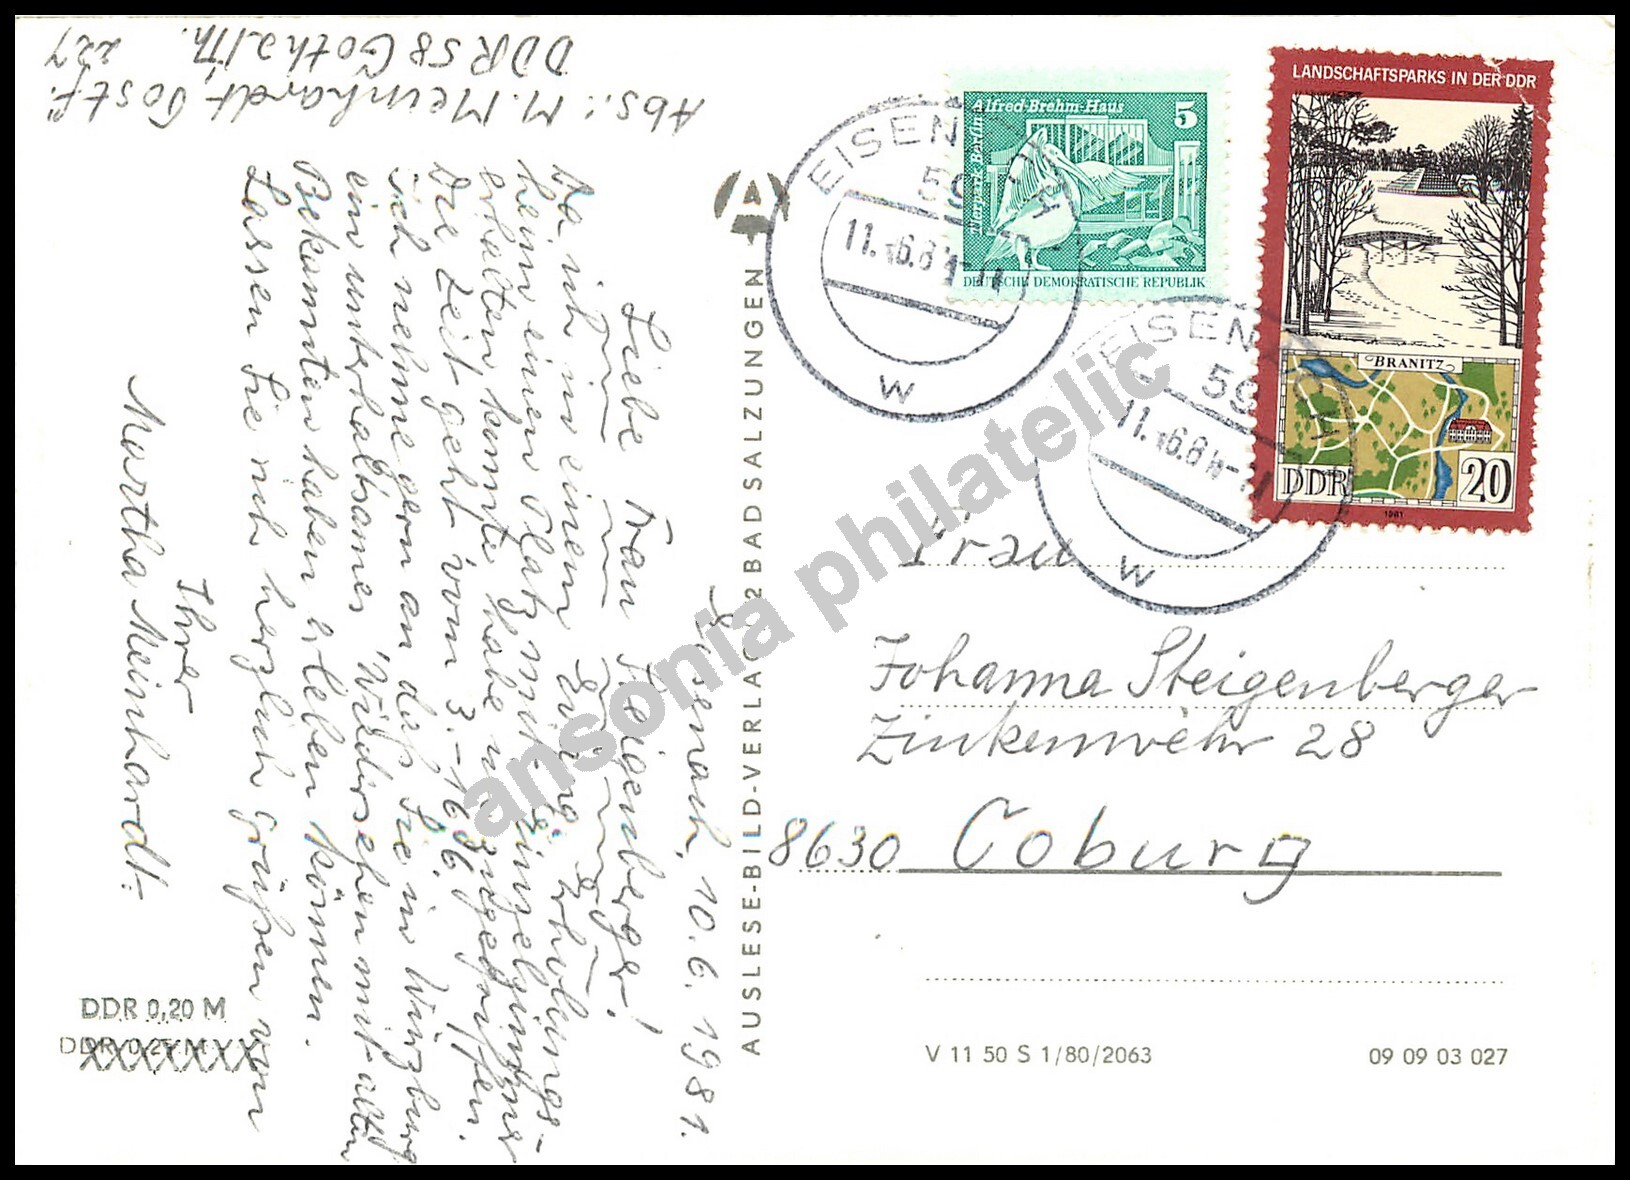 Abs.: M. Meinhardt, Postf.
DDR 58 Gotha/Th. 227
Eisenach, 10.6.1981.
Liebe Frau Steigenberger!
Da ich in einem Erholungs-
heim einen Platz mit Einzelzimmer
erhalten konnte, habe ich zugegriffen.
Die Zeit geht vom 3.-16.6.
Ich nehme gern an, daß Sie in Würzburg
ein unterhaltsames Wiedersehen mit alten
Bekannten haben erleben können.
Lassen Sie sich herzlich grüßen von
Ihrer
Martha Meinhardt.
DDR 0,20 M
DDR 0,25 M
AUSLESE-BILD-VERLAG 62 BAD SALZUNGEN
Alfred-Brehm-Haus
5
Tierpark Berlin
DEUTSCHE DEMOKRATISCHE REPUBLIK
LANDSCHAFTSPARKS IN DER DDR
BRANITZ
DDR
20
1981
EISENACH
59
11.-6.81-11
w
EISENACH
59
11.-6.81-11
w
Frau
Johanna Steigenberger
Zinkenwehr 28
8630 Coburg
V 11 50 S 1/80/2063
09 09 03 027
ansonia philatelic